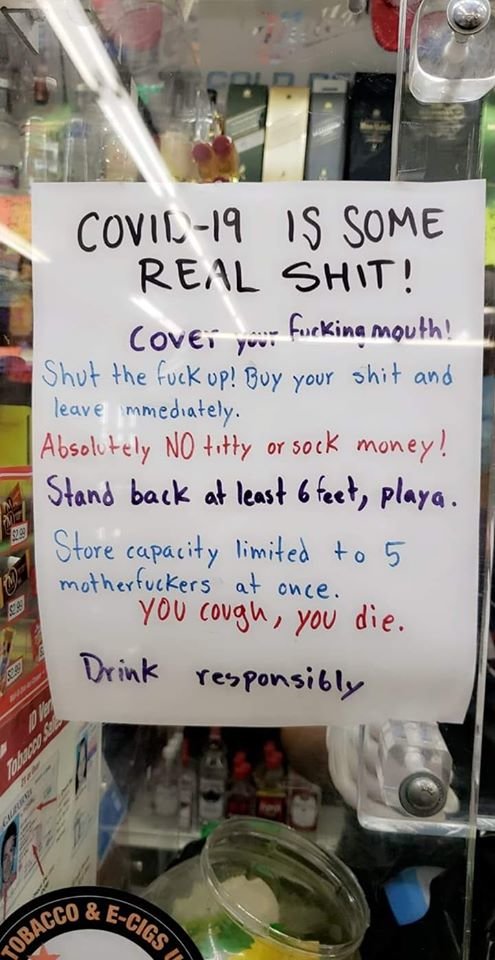 COLD
COVID-19 IS SOME
REAL SHIT!
Cover your fucking mouth!
Shut the fuck up! Buy your shit and
leave immediately.
Absolutely NO titty or sock money!
Stand back at least 6 feet, playa.
Store capacity limited to 5
motherfuckers at once.
YOU cough, you die.
Drink responsibly
$2.99
$2.99
$2.99
ID
Tobacco
CALIFORNIA
TOBACCO & E-CIGS